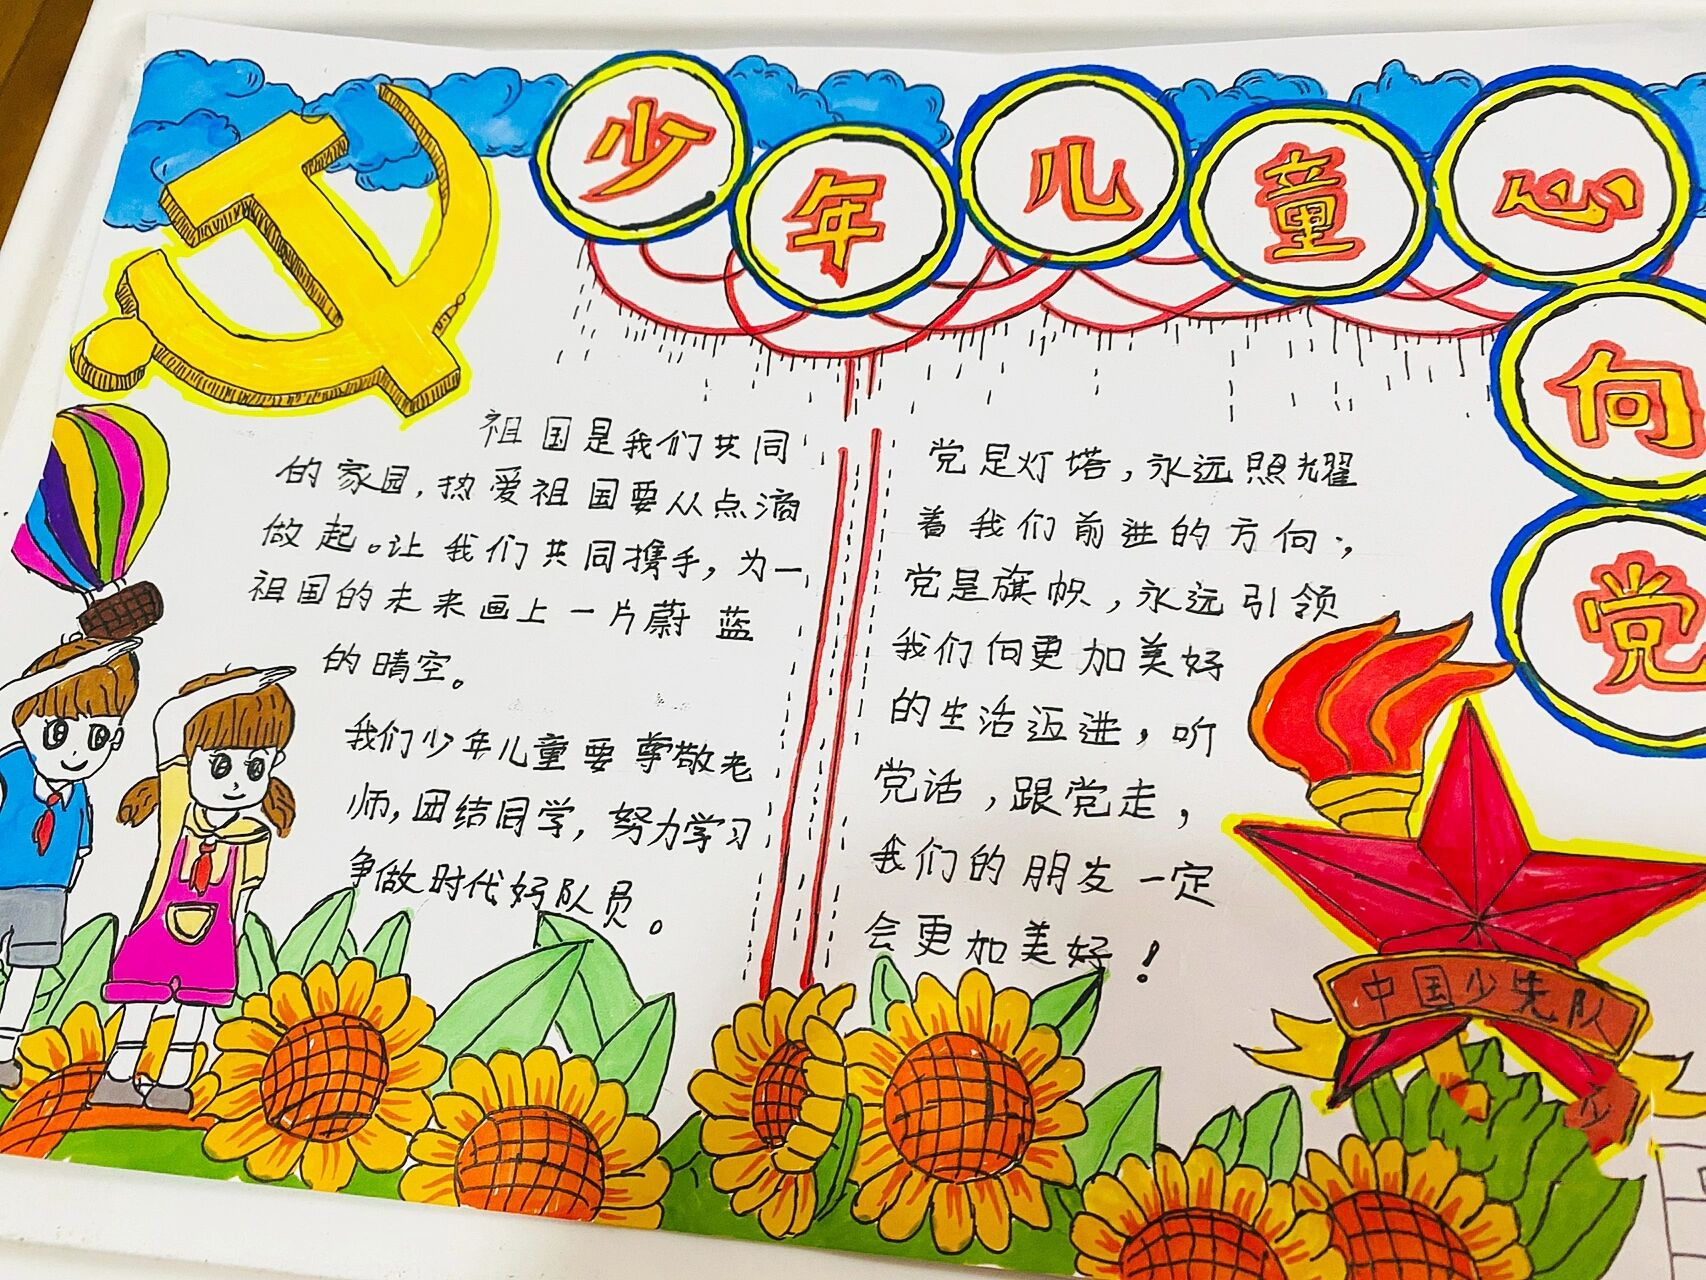 少年儿童心向党
祖国是我们共同
的家园,热爱祖国要从点滴
做起。让我们共同携手,为
祖国的未来画上一片蔚蓝
的晴空。
我们少年儿童要尊敬老
师,团结同学,努力学习
争做时代好队员。
党是灯塔,永远照耀
着我们前进的方向,
党是旗帜,永远引领
我们向更加美好
的生活迈进,听
党话,跟党走,
我们的朋友一定
会更加美好!
中国少先队